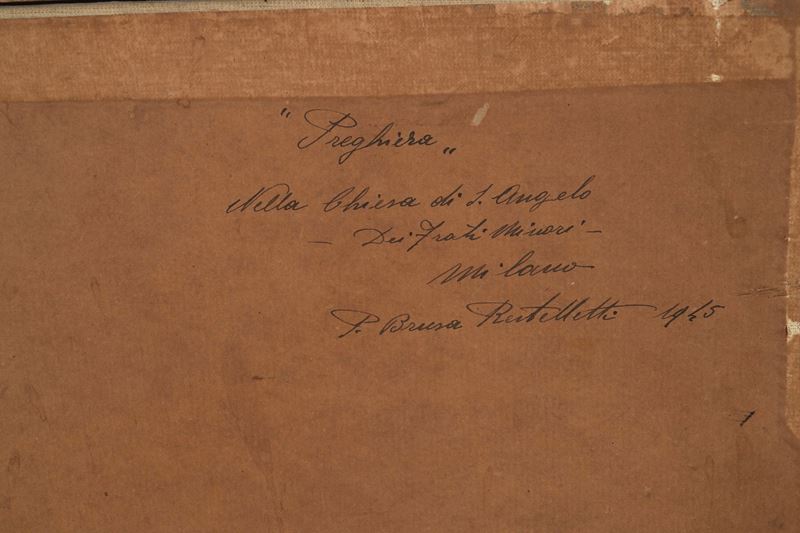 "Preghiera"
Nella Chiesa di S. Angelo
- Dei Frati Minori -
Milano
P. Brusa Restelletti 1945